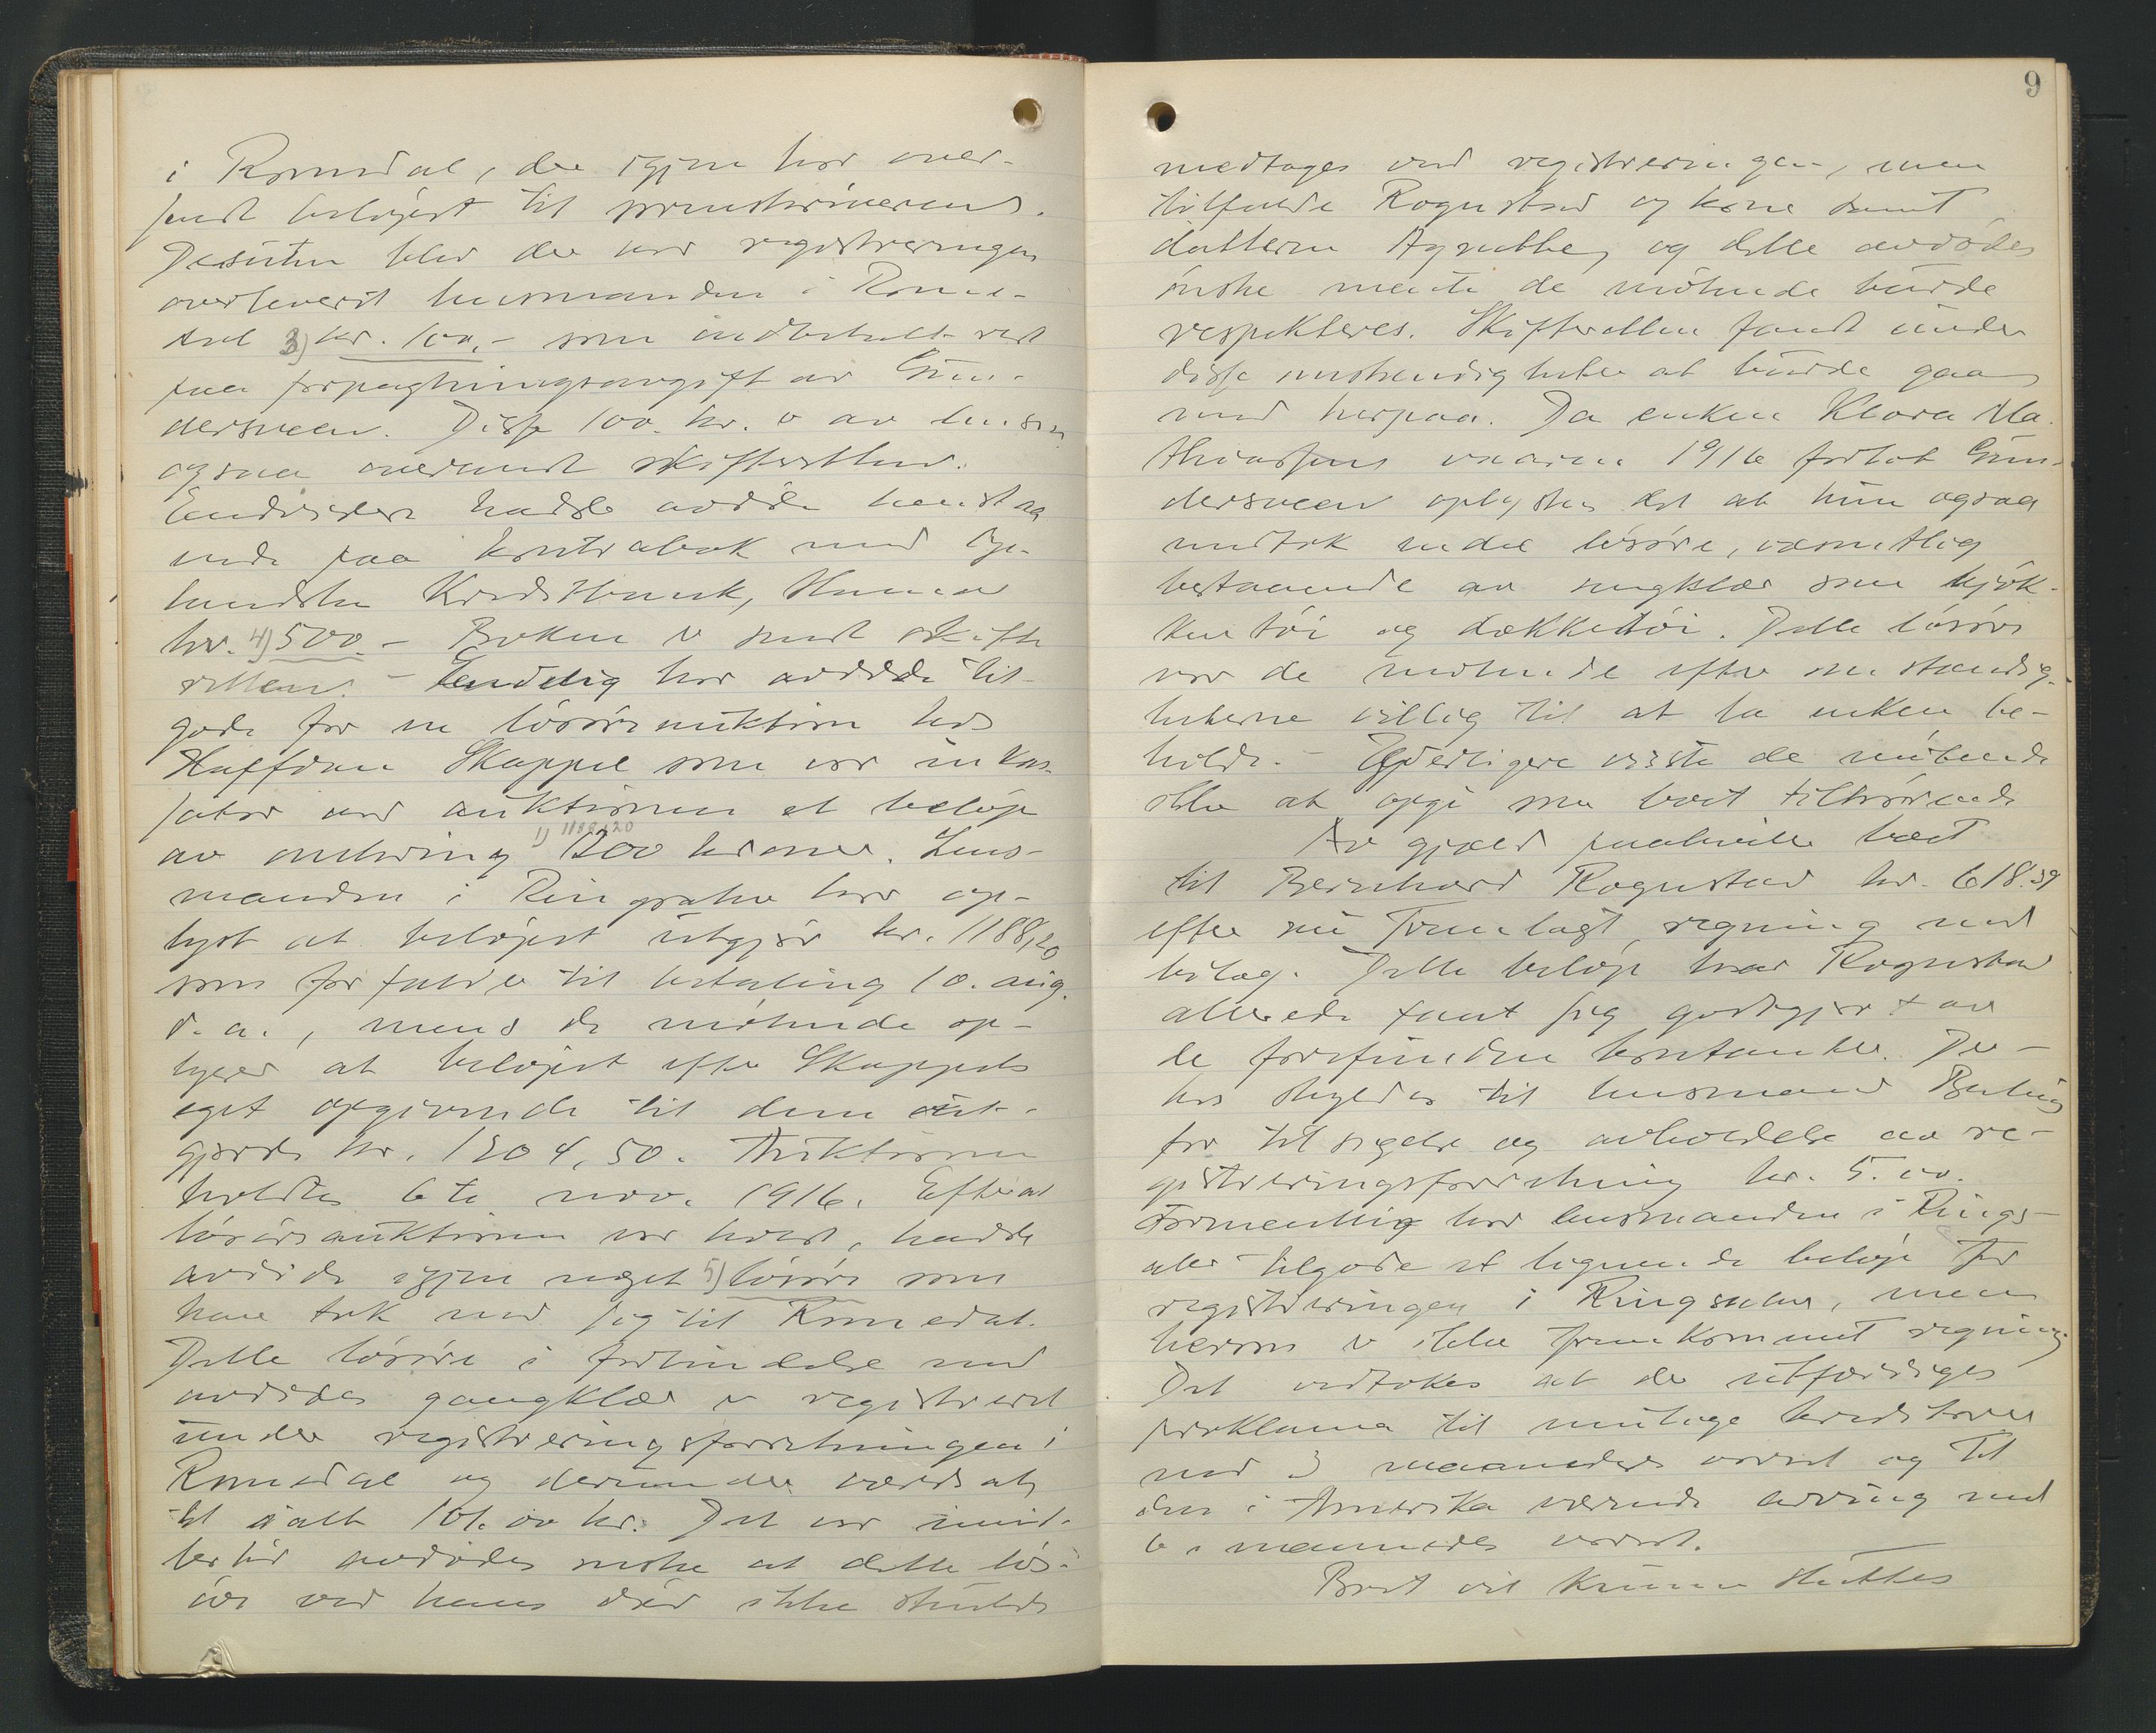 i Romedal, der igjen har over-
sendt beløpet til
Desuten blev der ved registreringen
overlevert lensmanden i Rome-
dal 3) kr. 100,- som indbetalt rest
paa forpagtningsavgift av Gun-
dersveen. Disse 100 kr. er av lensm.
ogsaa oversendt skifteretten.
Endvidere hadde avdøde henstaa
ende paa kontrabok med Op-
landske Kreditbank, Hamar
kr. 4) 500.- Boken er sendt skifte
retten. - Endelig har avdøde til-
gode for en løsøreauktion hos
Halfdan Skappel som var inkas-
sator ved auktionen et beløp
av omkring 1) 1188,20 1200 kroner. Lens-
manden i Ringsaker har op-
lyst at beløpet utgjør kr. 1188,20
som forfalder til betaling 10. aug.
d.a., mens de møtende op-
lyser at beløpet efter Skappels
eget opgivende til dem ut-
gjorde kr. 1204,50. Auktionen
holdtes 6te nov. 1916. Efterat
løsøreauktionen var holdt, hadde
avdøde igjen noget 5) løsøre som
han tok med sig til Romedal.
Dette løsøre i forbindelse med
avdødes gangklær er registrert
under registreringsforretningen i
Romedal og derunder verdsat
til ialt 101.00 kr. Det var imid-
lertid avdødes ønske at dette løs-
øre ved hans død ikke skulde
9
medtages ved registreringen, men
tilfalde Rognstad og kone samt
datteren Agnethe, og dette avdødes
ønske mente de møtende burde
respekteres. Skifteretten fandt under
disse omstendigheter at burde gaa
med herpaa. Da enken Klara Ma-
thiassens vaaren 1916 forlot Gun-
dersveen oplystes det at hun ogsaa
medtok endel løsøre, væsentlig
bestaaende av sengklær som kjøk-
kentøi og dækketøi. Dette løsøre
var de møtende efter omstændig-
heterne villig til at la enken be-
holde. - Yderligere visste de møtende
ikke at opgi som boet tilhørende
Av gjæld paahviler boet
til Bernhard Rognstad kr. 618.39
efter nu fremlagt regning med
bilag. Dette beløp har Rognstad
allerede faat sig godtgjort av
de forefundne kontanter. Der-
hos skyldes til lensmand
for tilsigelse og avholdelse av re-
gistreringsforretning kr. 5.00.
Formentlig har lensmanden i Rings-
aker tilgode et lignende beløp for
registreringen i Ringsaker, men
herom er ikke fremkommet regning.
Det vedtokes at der utfærdiges
proklama til mulige kreditorer
med 3 maaneders varsel og til
den i Amerika værende arving med
6 maaneders varsel.
Boet vil kunne sluttes